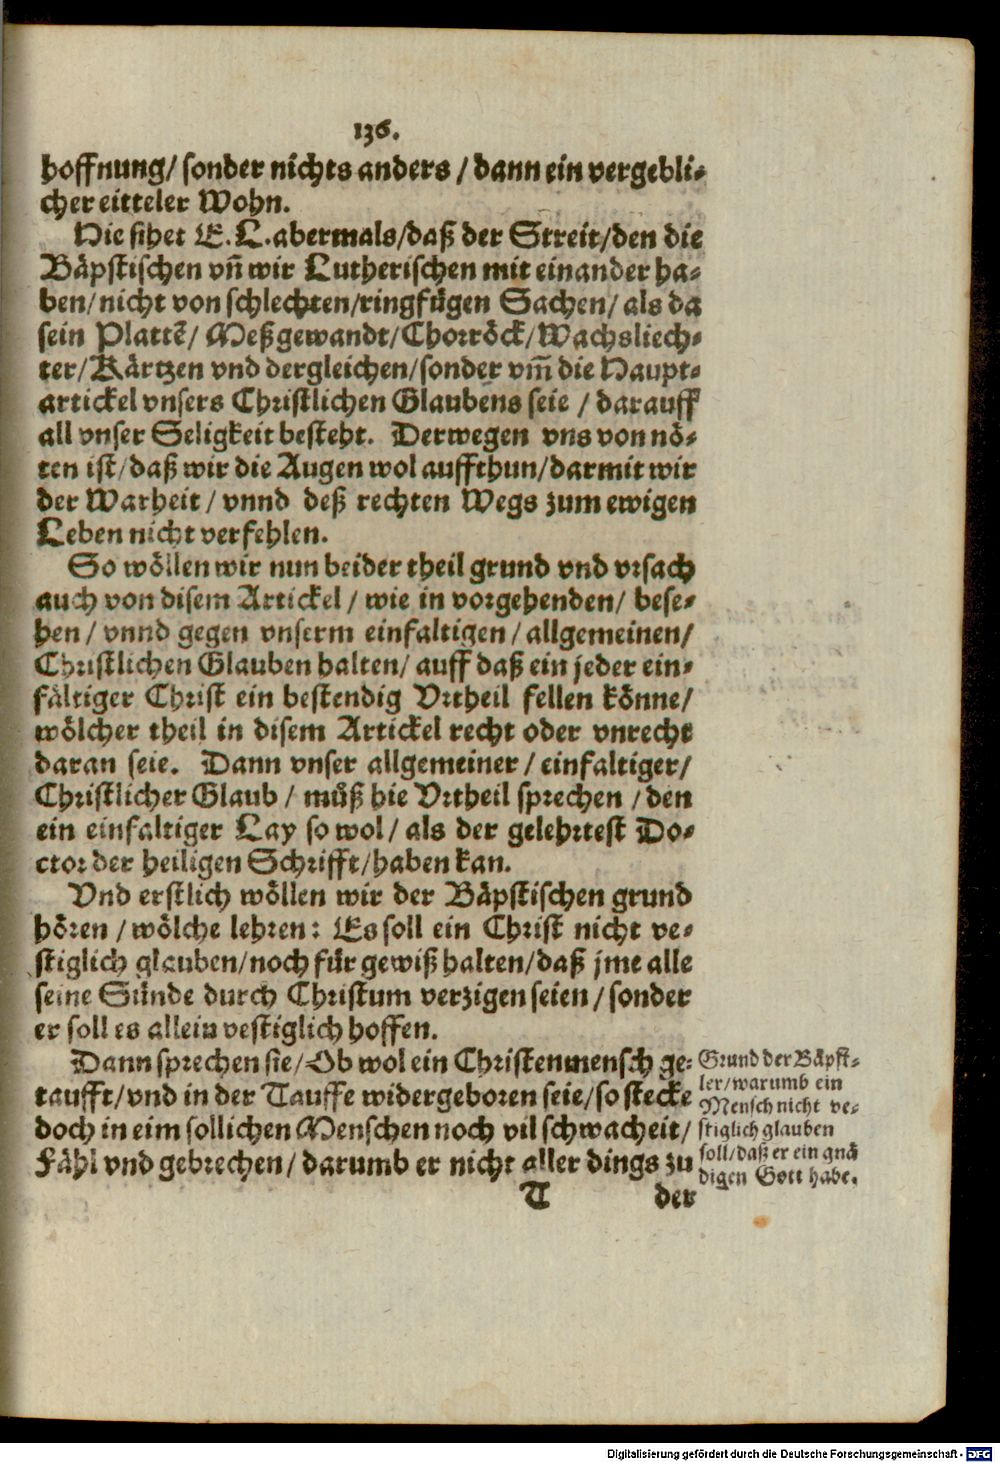 136.
hoffnung/ sonder nichts anders / dann ein vergebli-
cher eitteler Wohn.
Hie sihet E. L. abermals/daß der Streit/den die
Bäpstischen vñ wir Lutherischen mit einander ha-
ben/nicht von schlechten/ringfügen Sachen/ als da
sein Plattē/ Meßgewandt/Chorröck/Wachsliech-
ter/Kärtzen vnd dergleichen/sonder vm̃ die Haupt-
artickel vnsers Christlichen Glaubens seie / darauff
all vnser Seligkeit besteht. Derwegen vns von nö-
ten ist/daß wir die Augen wol auffthun/darmit wir
der Warheit / vnnd deß rechten Wegs zum ewigen
Leben nicht verfehlen.
So wöllen wir nun beider theil grund vnd vrsach
auch von disem Artickel / wie in vorgehenden/ bese-
hen / vnnd gegen vnserm einfaltigen / allgemeinen/
Christlichen Glauben halten/ auff daß ein jeder ein-
fältiger Christ ein bestendig Vrtheil fellen könne/
wölcher theil in disem Artickel recht oder vnrecht
daran seie. Dann vnser allgemeiner / einfaltiger/
Christlicher Glaub / müß hie Vrtheil sprechen / den
ein einfaltiger Lay so wol / als der gelehrtest Do-
ctor der heiligen Schrifft/haben kan.
Vnd erstlich wöllen wir der Bäpstischen grund
hören / wölche lehren: Es soll ein Christ nicht ve-
stiglich glauben/noch für gewiß halten/daß jme alle
seine Sünde durch Christum verzigen seien / sonder
er soll es allein vestiglich hoffen.
Dann sprechen sie/Ob wol ein Christenmensch ge-
taufft/vnd in der Tauffe widergeboren seie/so stecke
doch in eim sollichen Menschen noch vil schwacheit/
Fähl vnd gebrechen/ darumb er nicht aller dings zu
T der
Grund der Bäpst-
ler/warumb ein
Mensch nicht ve-
stiglich glauben
soll/daß er ein gnä
digen Gott habe.
Digitalisierung gefördert durch die Deutsche Forschungsgemeinschaft - DFG